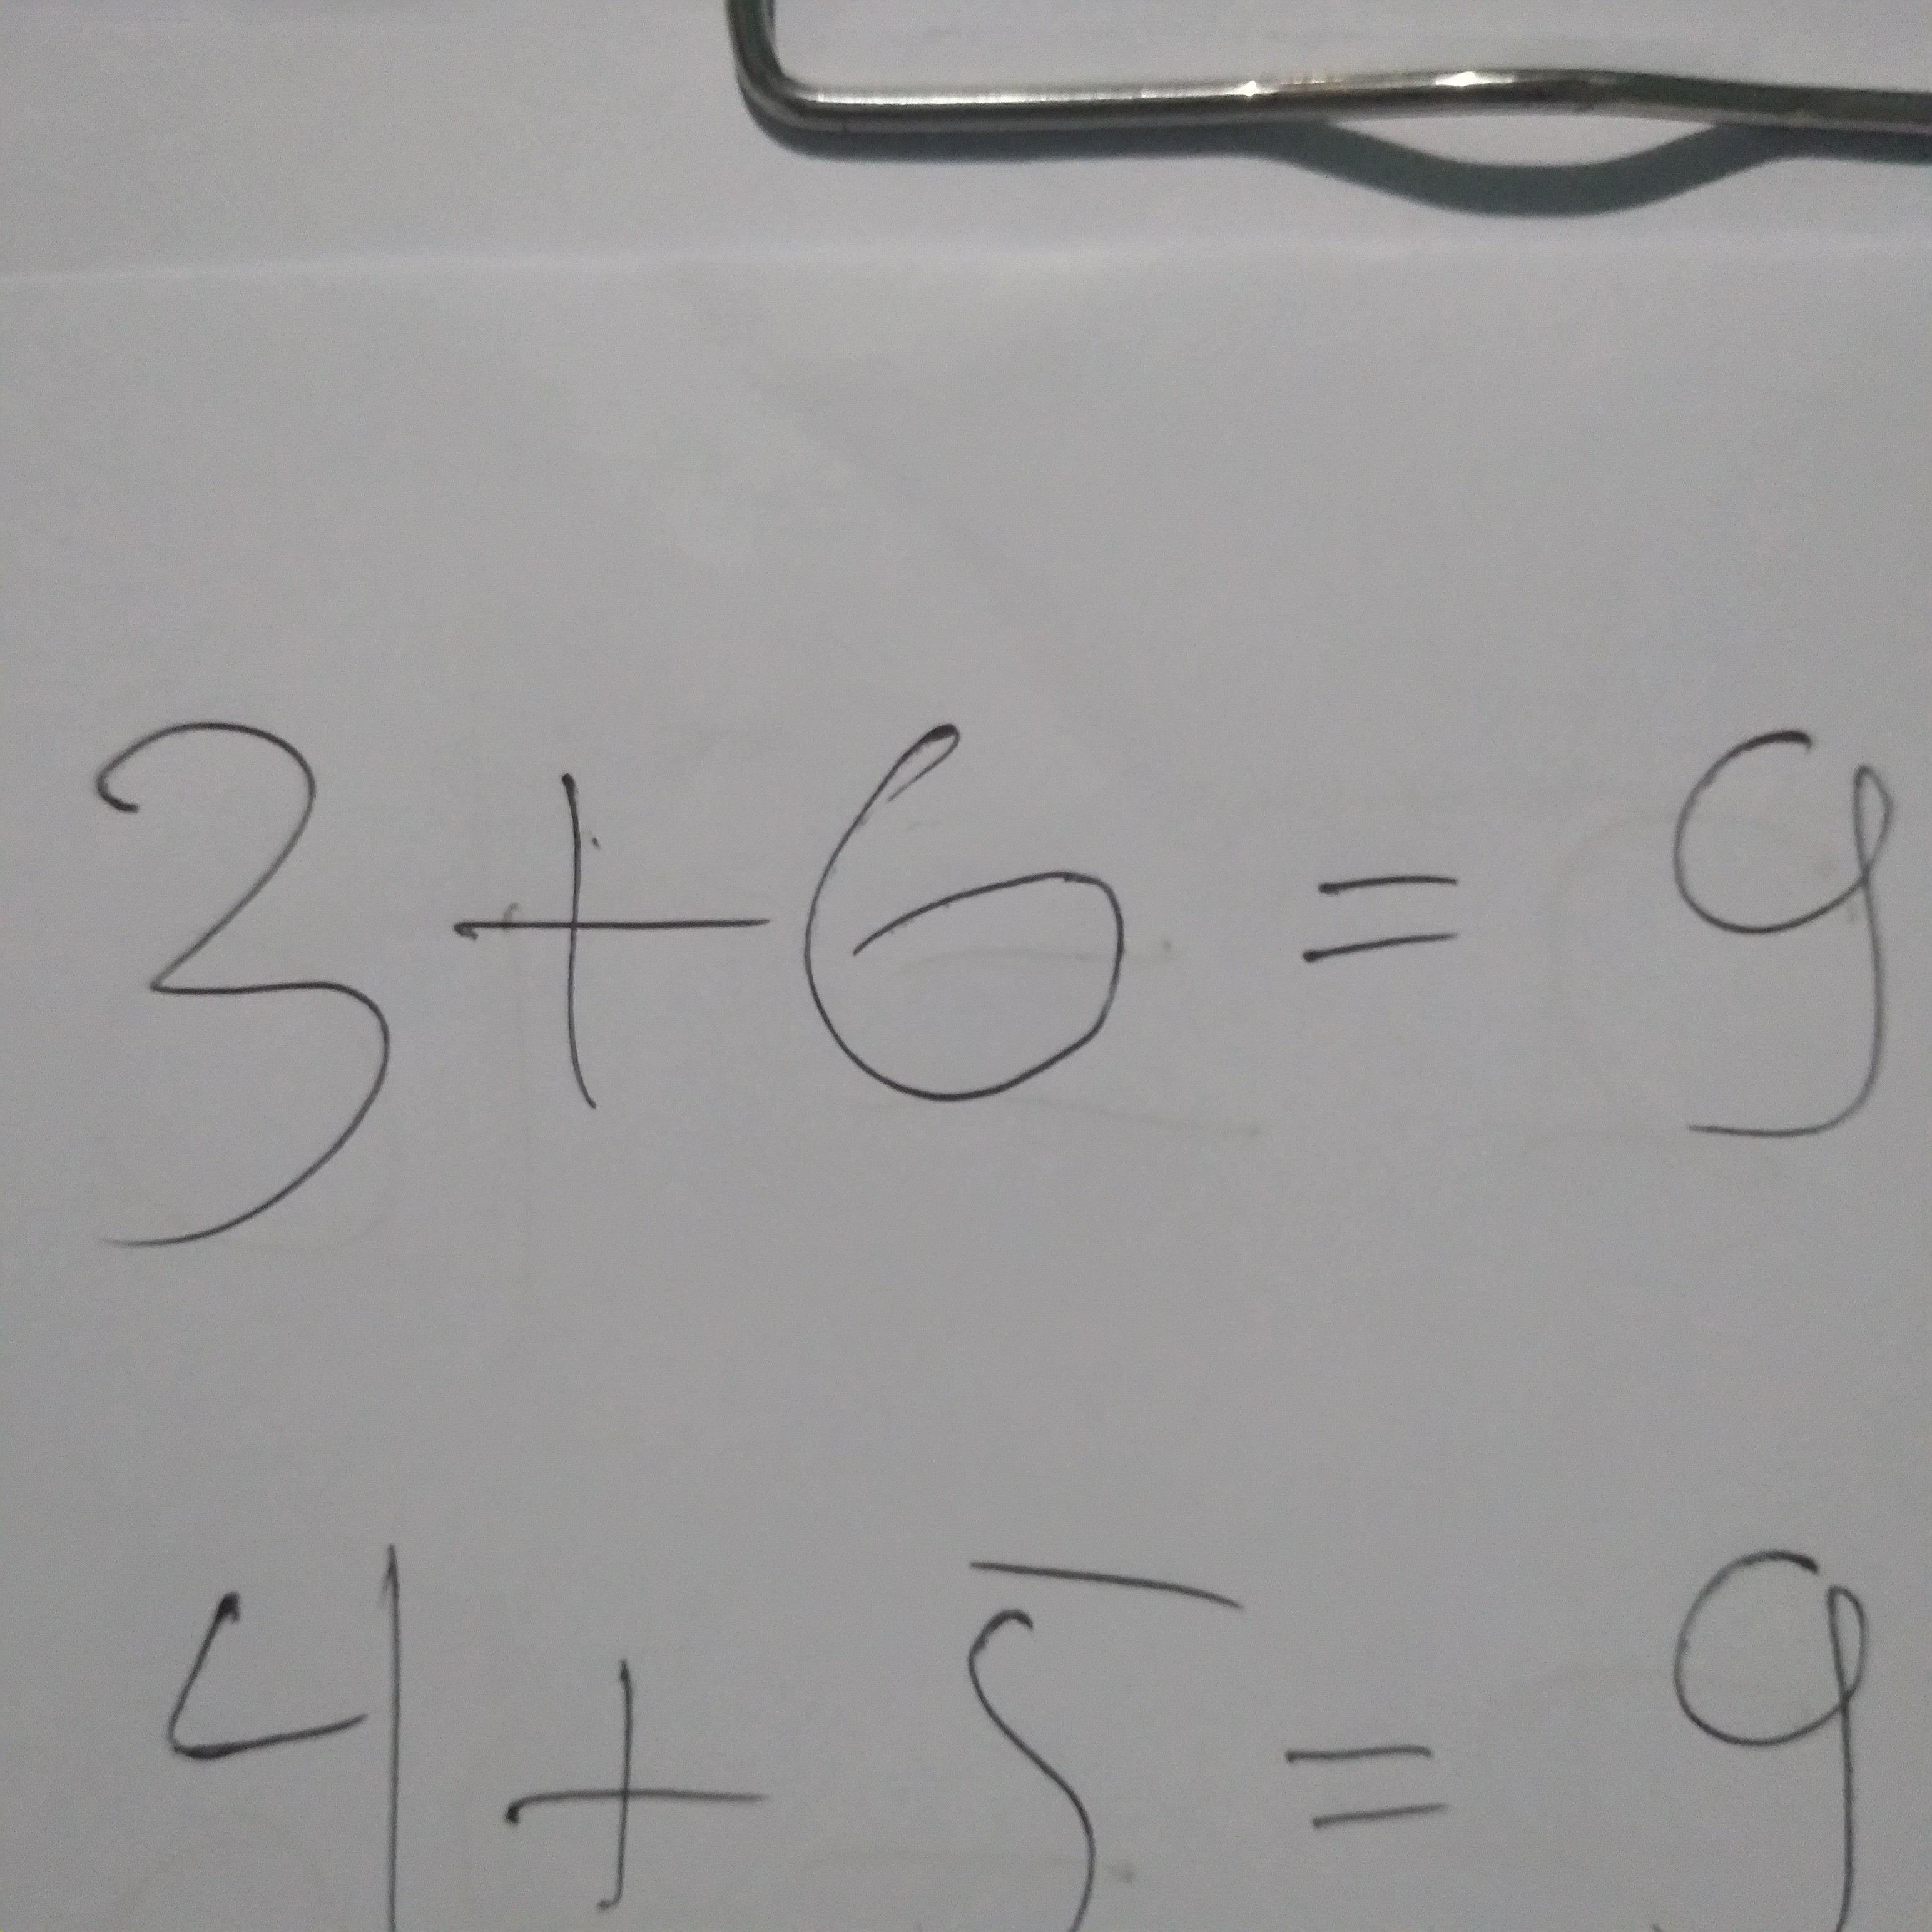 3+6 = 9
4+5 = 9